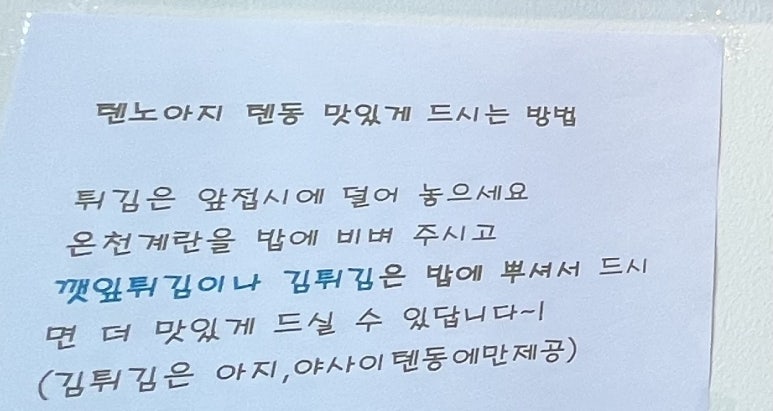 텐노아지 텐동 맛있게 드시는 방법
튀김은 앞접시에 덜어 놓으세요
온천계란을 밥에 비벼 주시고
깻잎튀김이나 김튀김은 밥에 뿌셔서 드시
면 더 맛있게 드실 수 있답니다~!
(김튀김은 아지,야사이텐동에만제공)